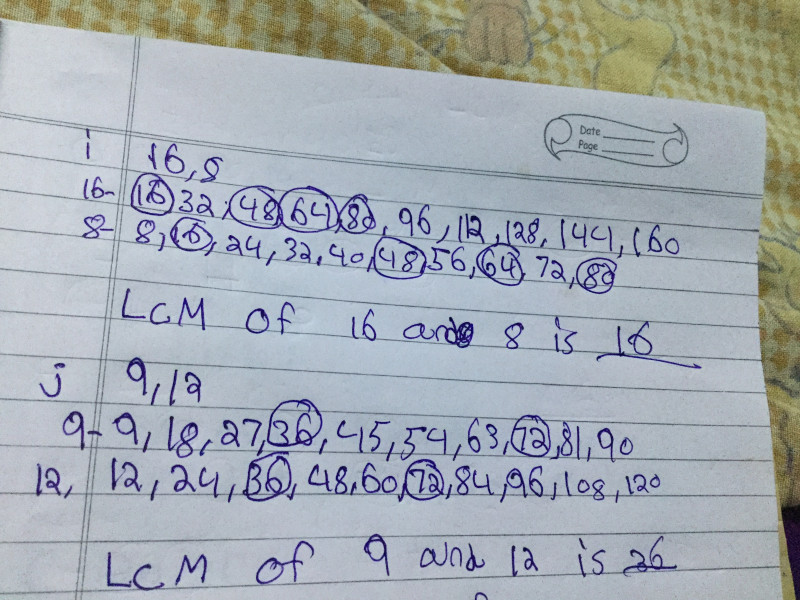 Date
Page
i 16,8
16- 16 32, 48 64, 80, 96, 112, 128, 144, 160
8- 8, 16, 24, 32, 40, 48, 56, 64, 72, 80
LCM of 16 and 8 is 16
j 9,12
9- 9, 18, 27, 36, 45, 54, 63, 72, 81, 90
12, 12, 24, 36, 48, 60, 72, 84, 96, 108, 120
LCM of 9 and 12 is 36